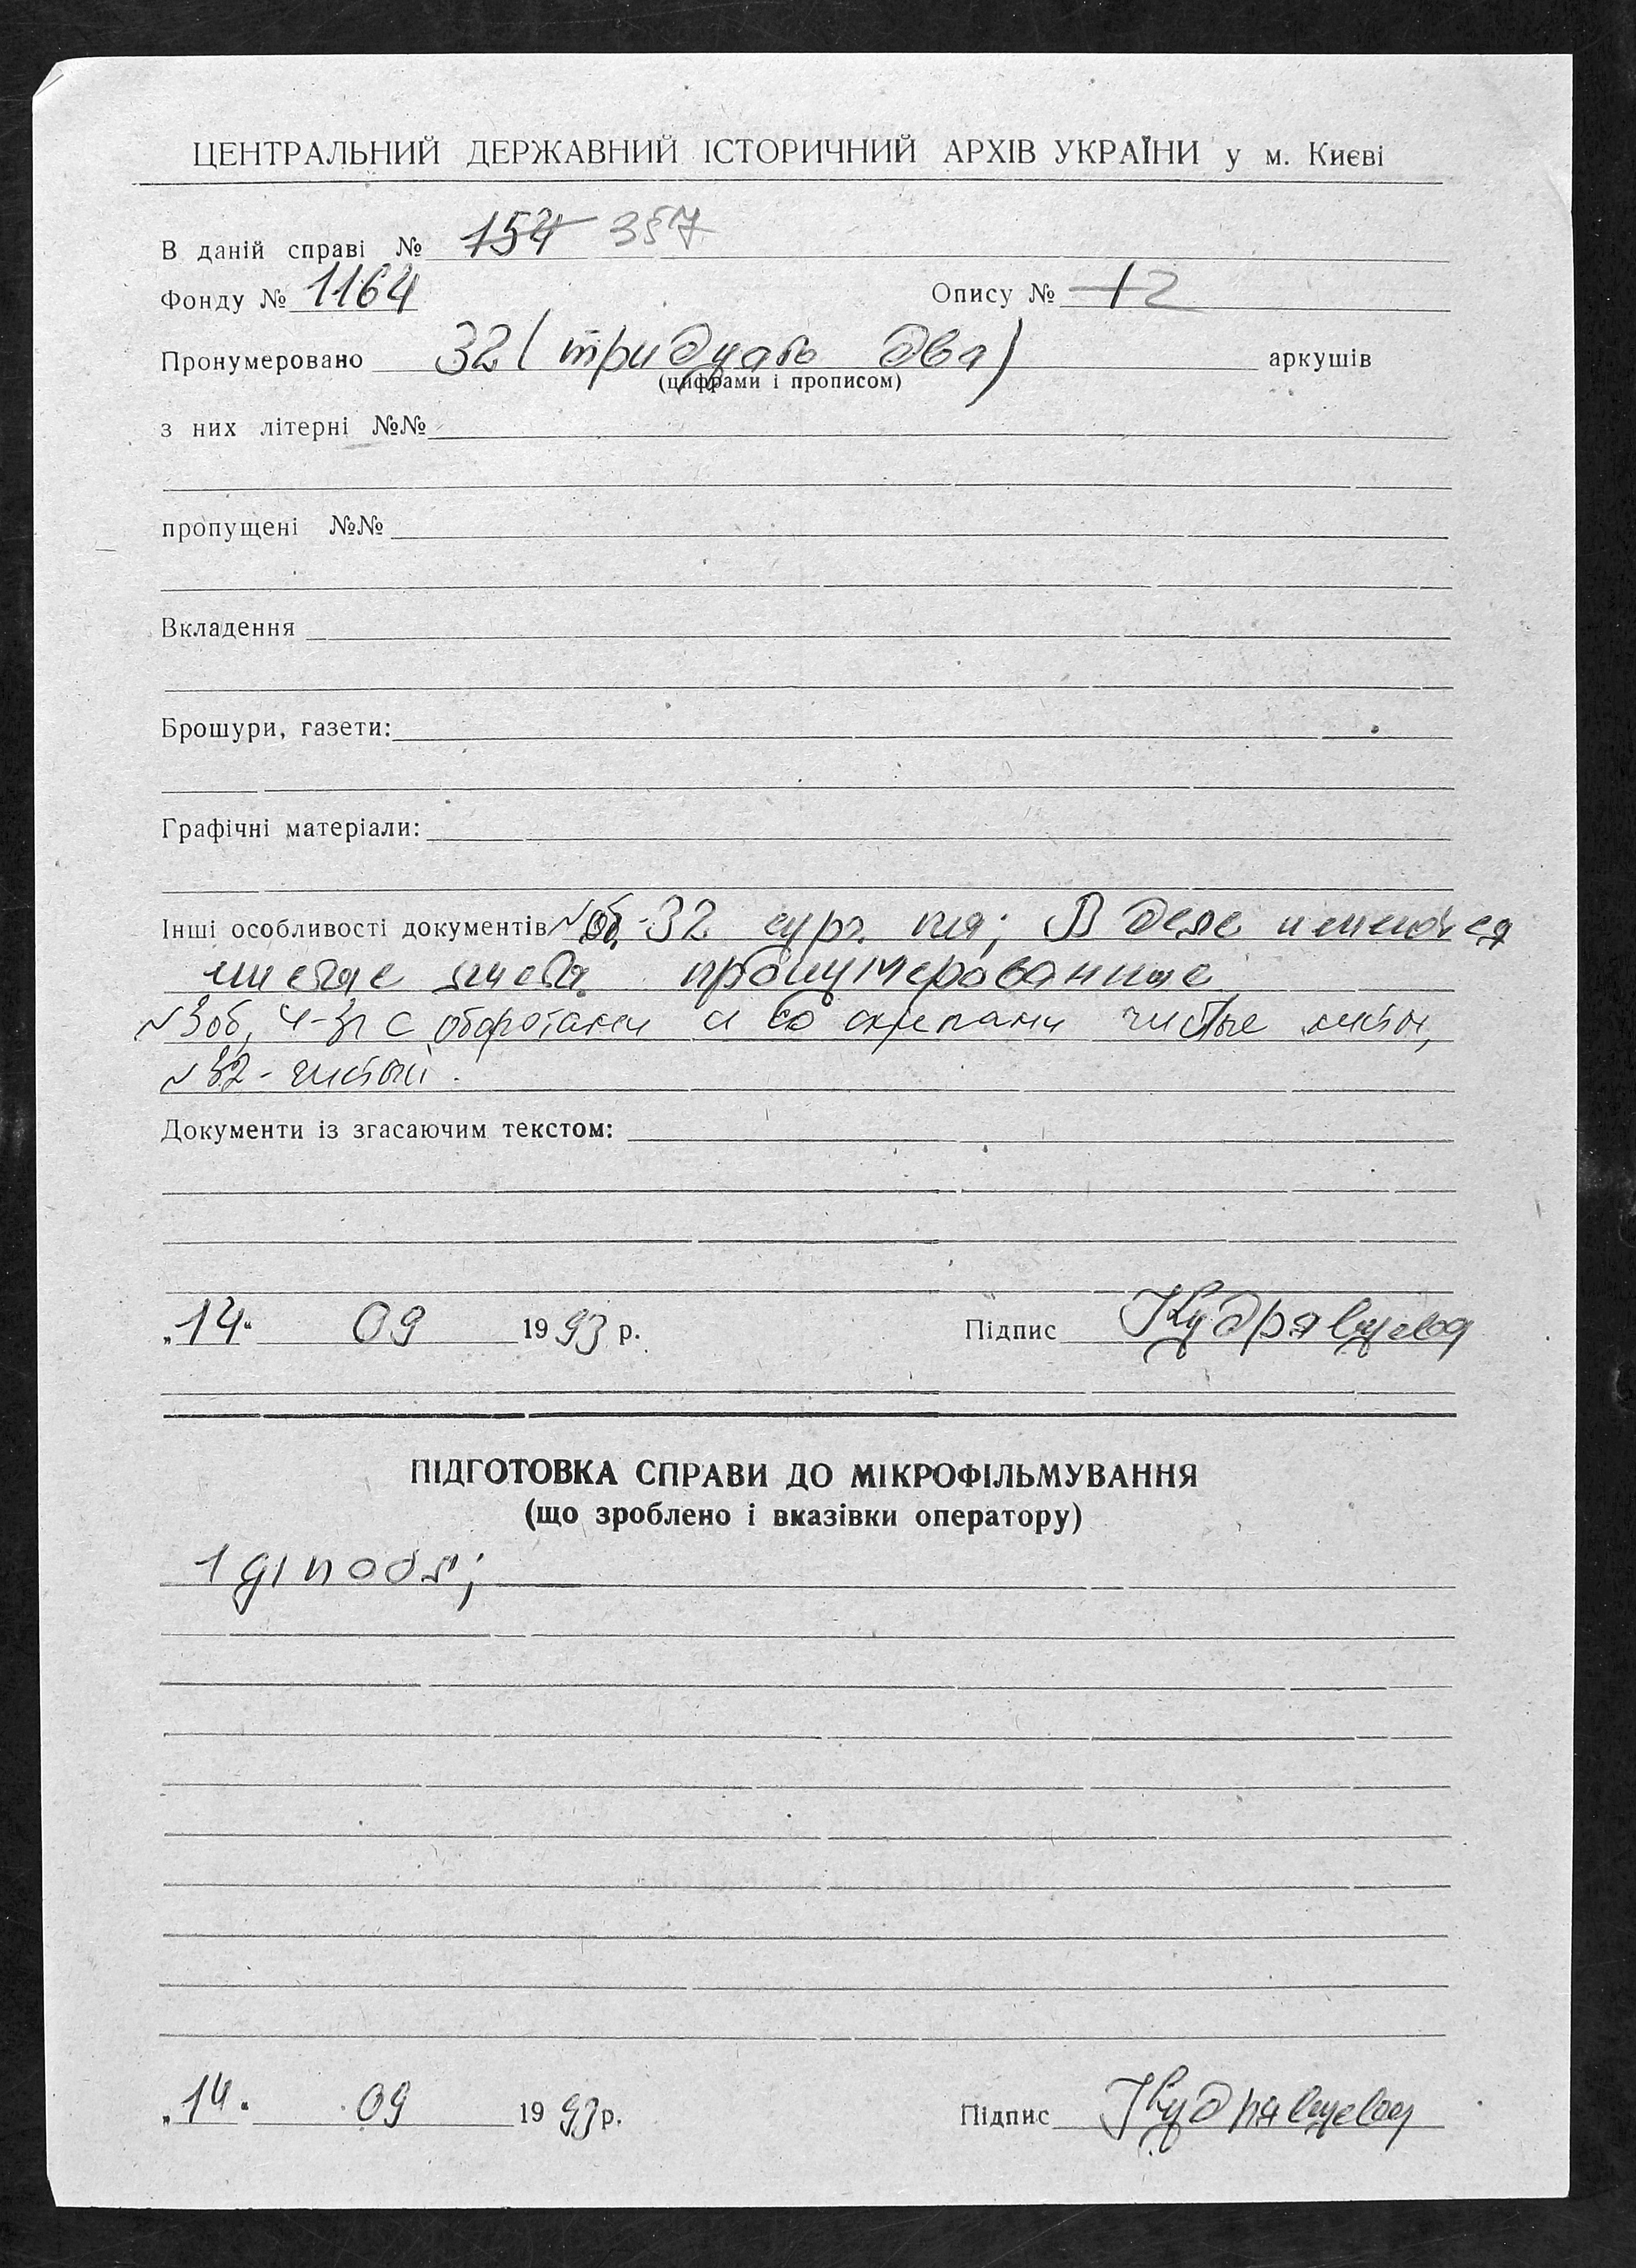 ЦЕНТРАЛЬНИЙ ДЕРЖАВНИЙ ІСТОРИЧНИЙ АРХІВ УКРАЇНИ у м. Києві
В даній справі № 154 357
Фонду № 1164 Опису № 1 2
Пронумеровано 32 (тридцать два) аркушів
(цифрами і прописом)
з них літерні №№
пропущені №№
Вкладення
Брошури, газети:
Графічні матеріали:
Інші особливості документів №об-32 сург. В деле имеются
чистые листа пронумерованные
№3об, 4-31 с оборотами и со скрепами чистые листы,
№32- чистый.
Документи із згасаючим текстом:
„14“ 09 1993 р. Підпис Кудрявцева
ПІДГОТОВКА СПРАВИ ДО МІКРОФІЛЬМУВАННЯ
(що зроблено і вказівки оператору)
„14“ 09 1993 р. Підпис Кудрявцева